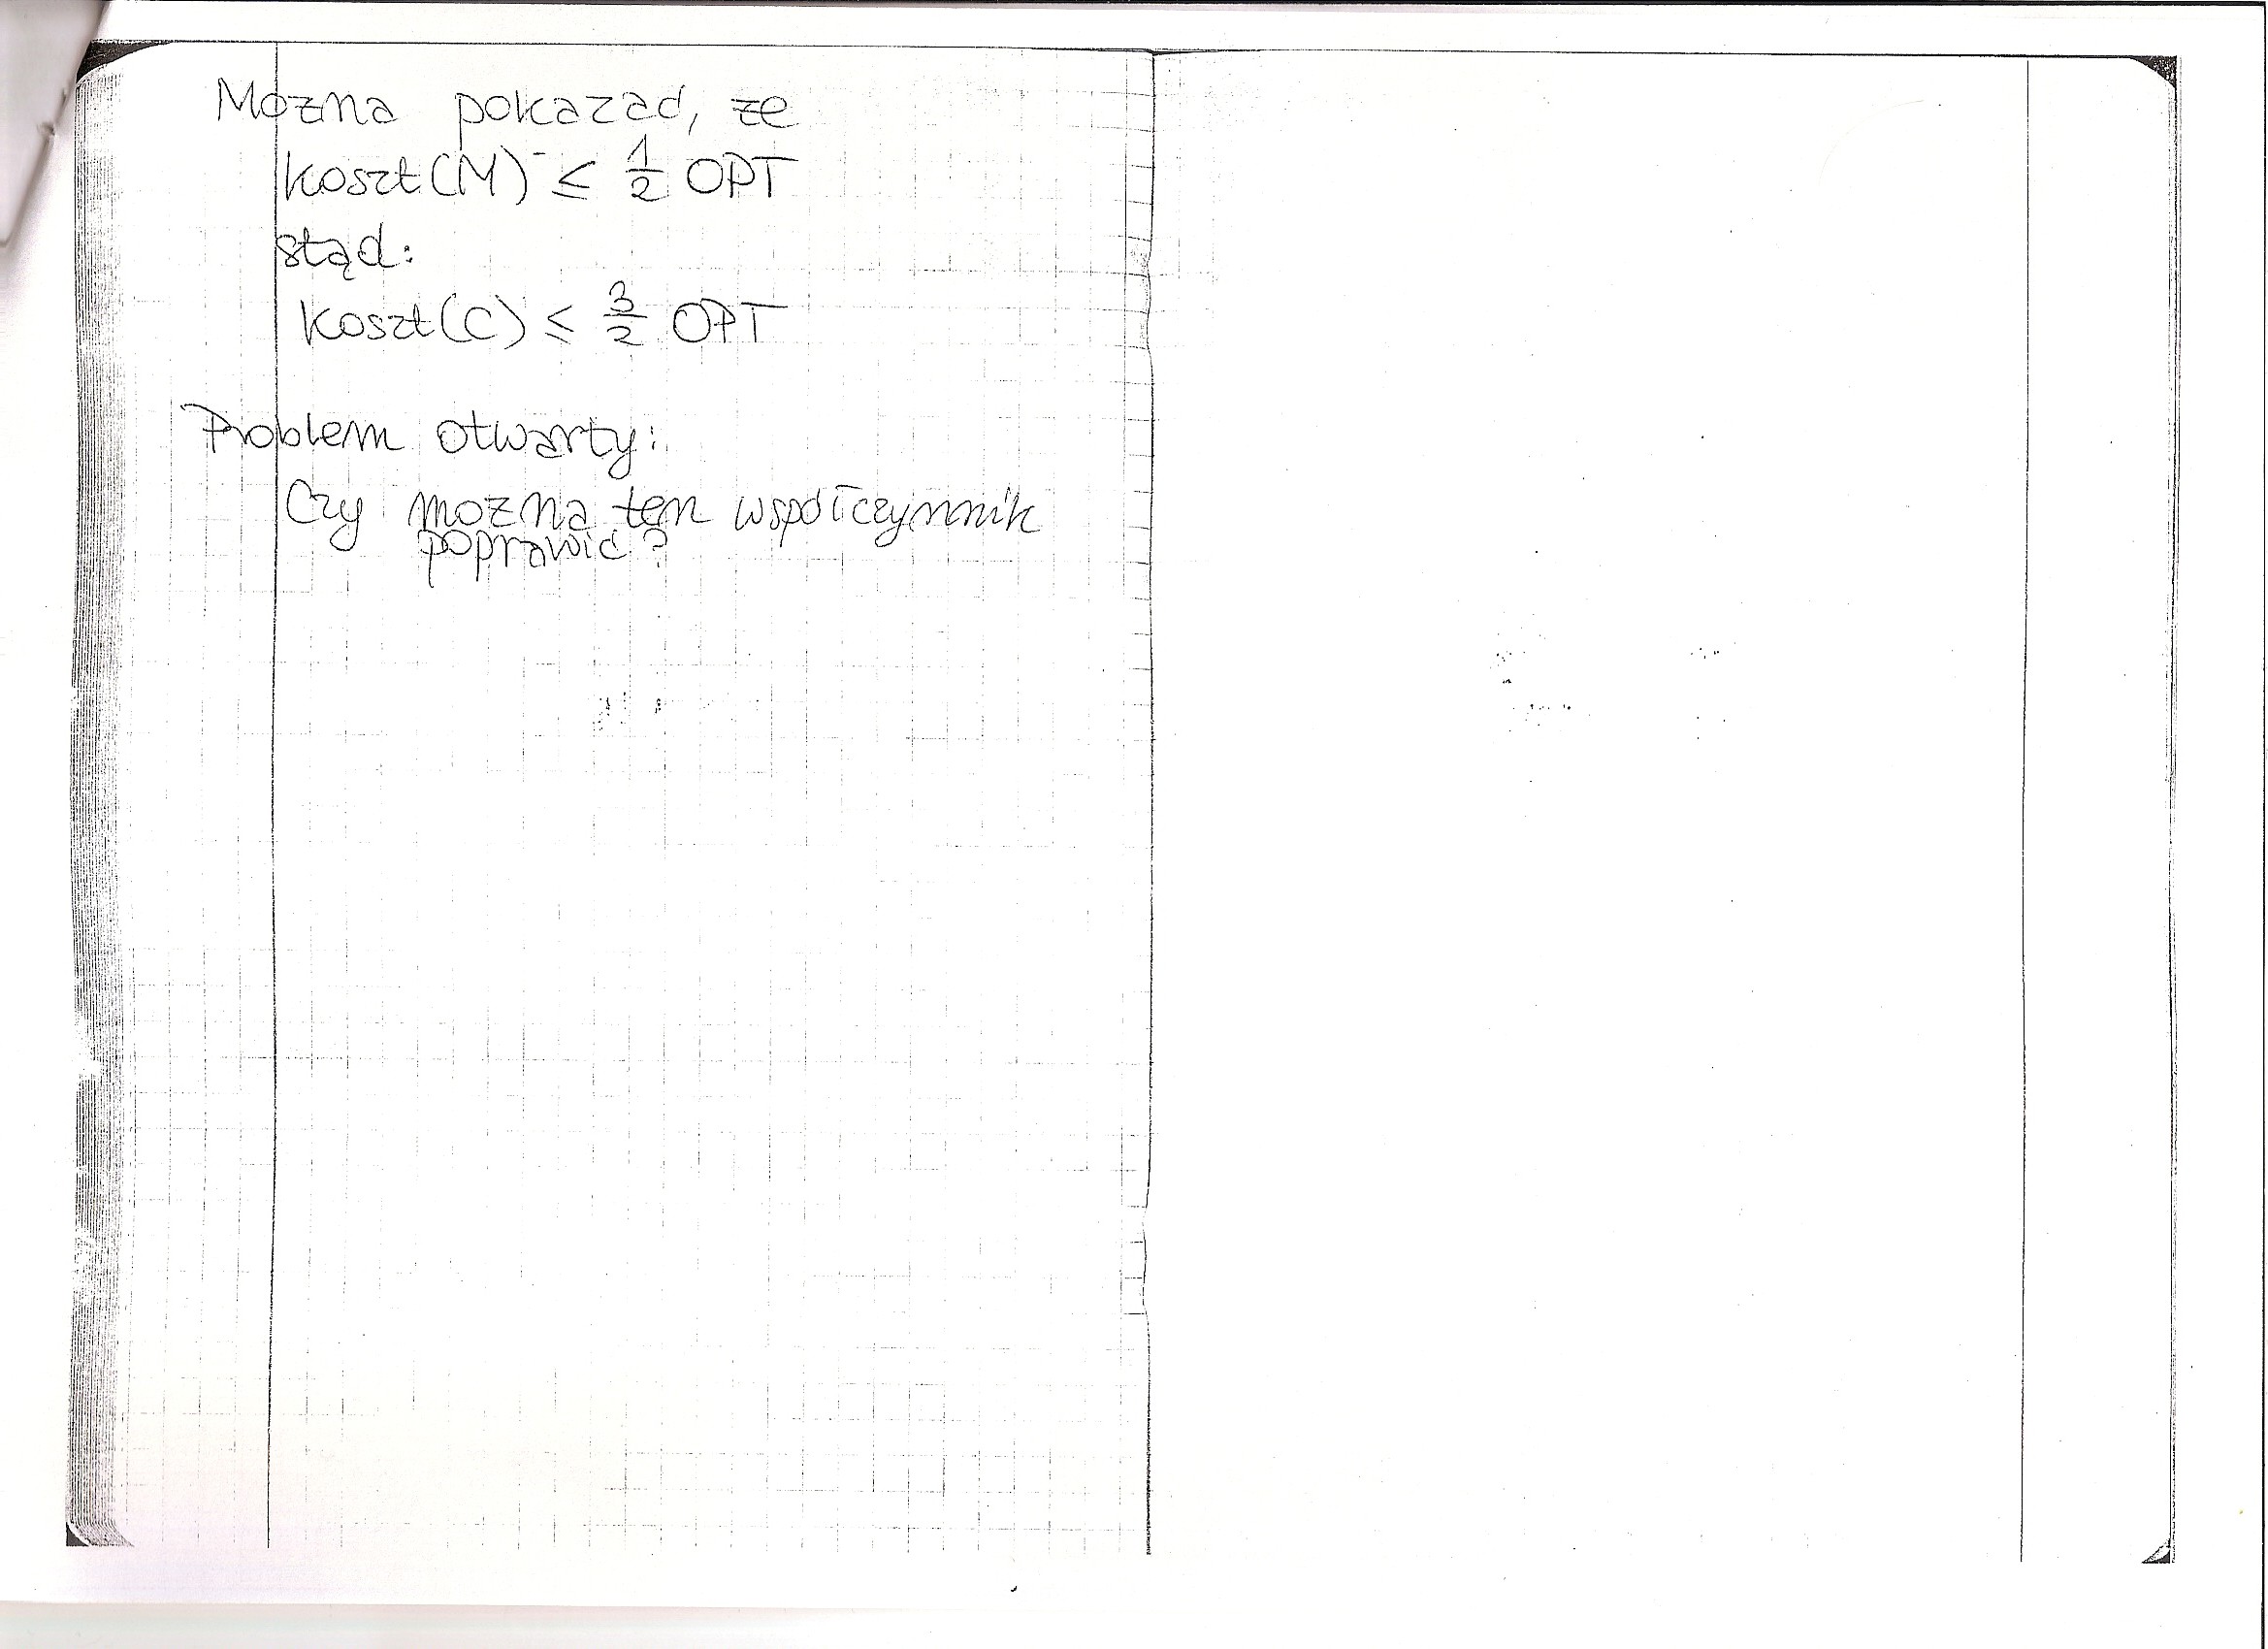 Można pokazać, że
koszt(M) ≤ 1/2 OPT
stąd:
koszt(C) ≤ 3/2 OPT
Problem otwarty:
Czy można ten współczynnik
poprawić?